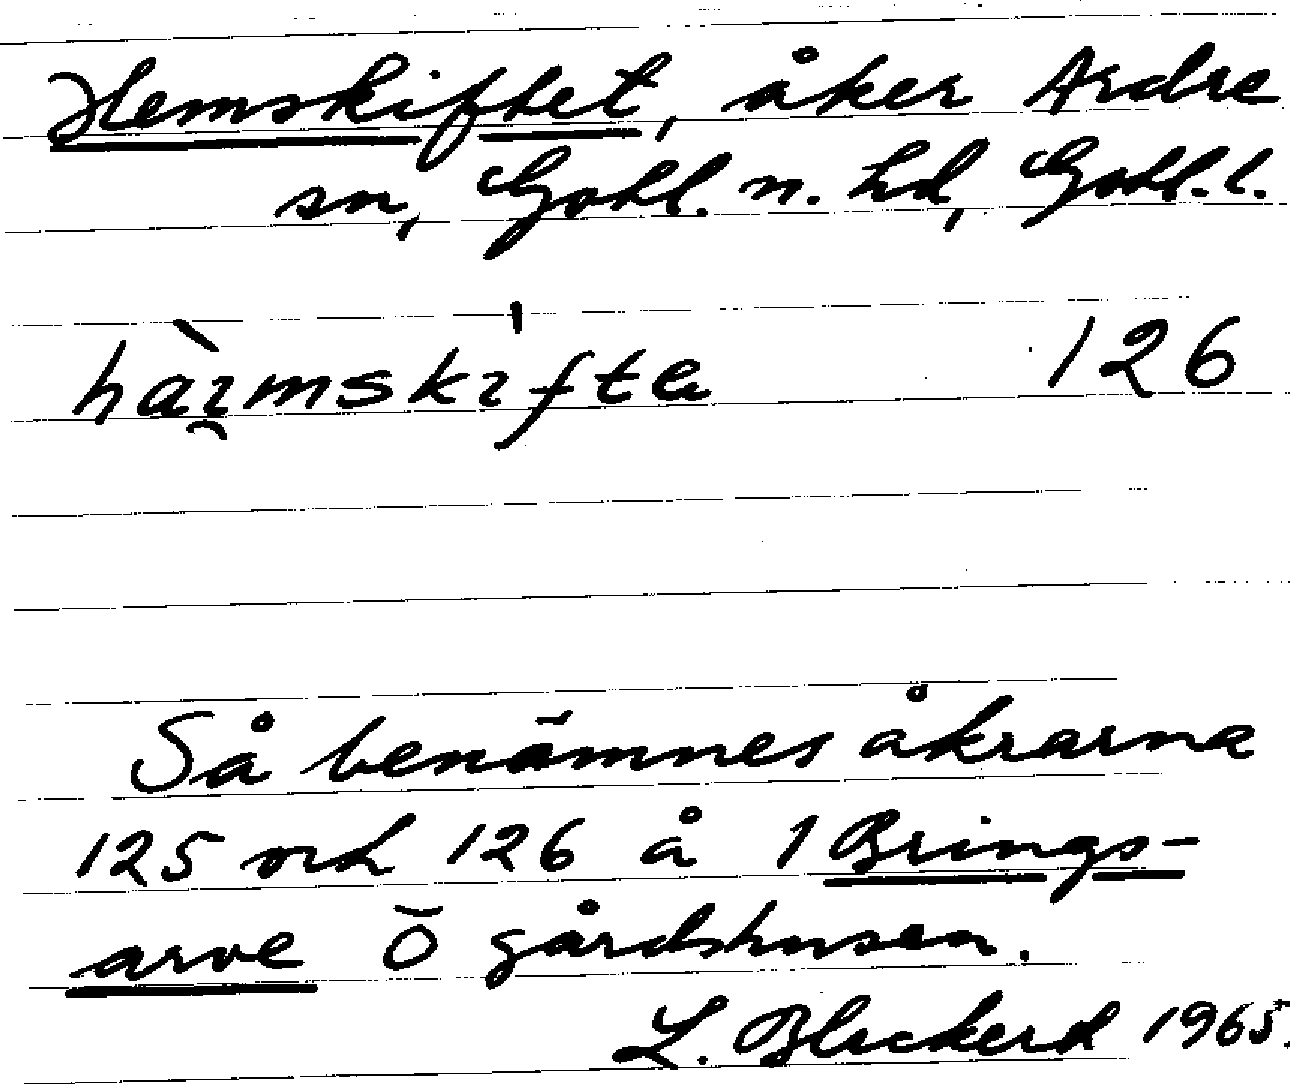 Hemskiftet, åker Ardre
sn, Gotl. n. hd, Gotl. l.
hàı̯mski̍fta 126
Så benämnes åkrarna
125 och 126 å 1 Brings-
arve Ö gårdshusen.
L. Bleckerd 1965.